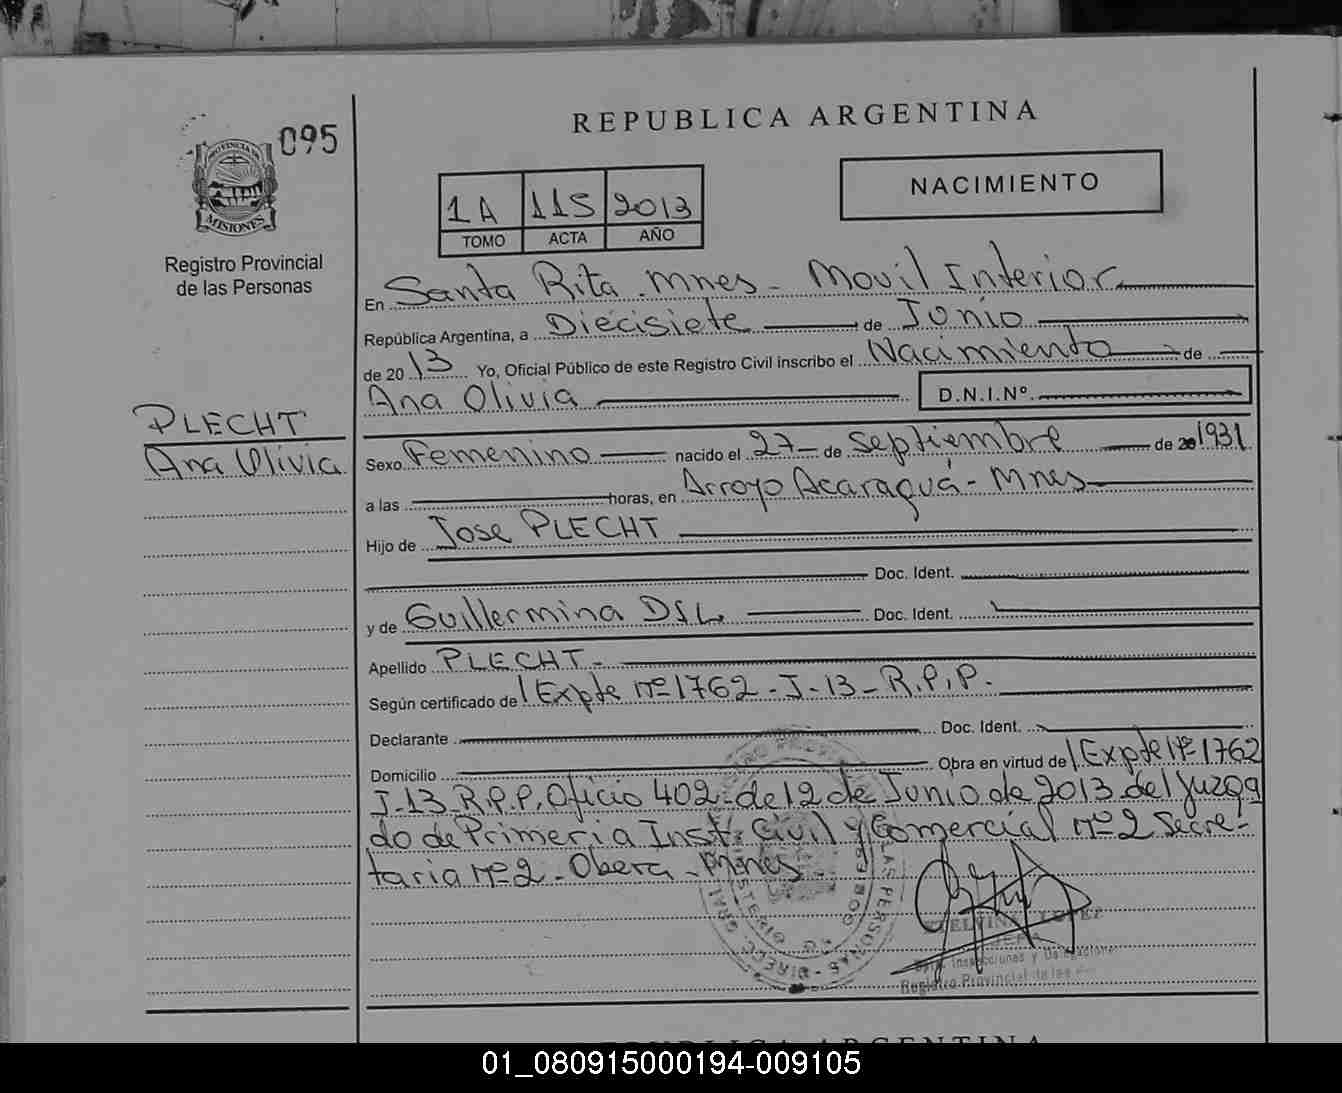 095
PROVINCIA DE
MISIONES
Registro Provincial
de las Personas
PLECHT
Ana Olivia
REPUBLICA ARGENTINA
1A 115 2013
TOMO ACTA AÑO
NACIMIENTO
En Santa Rita - Mnes - Movil Interior
República Argentina, a Diecisiete de Junio
de 2013 Yo, Oficial Público de este Registro Civil inscribo el Nacimiento de
Ana Olivia D.N.I.Nº.
Sexo Femenino nacido el 27 de Septiembre de 1931
a las horas, en Arroyo Acaraguá - Mnes
Hijo de Jose PLECHT
Doc. Ident.
y de Guillermina DSL Doc. Ident.
Apellido PLECHT
Según certificado de Expte Nº 1762 - J - 13 - R.P.P.
Declarante Doc. Ident.
Domicilio Obra en virtud del Expte Nº 1762
J-13-R.P.P. Oficio 402 - de 12 de Junio de 2013 del Juzga
do de Primeria Inst. Civil y Comercial Nº 2 Secre-
taria Nº 2 - Obera - Mnes -
LOPEZ
Registro Provincial de las
REPUBLICA ARGENTINA
01_080915000194-009105